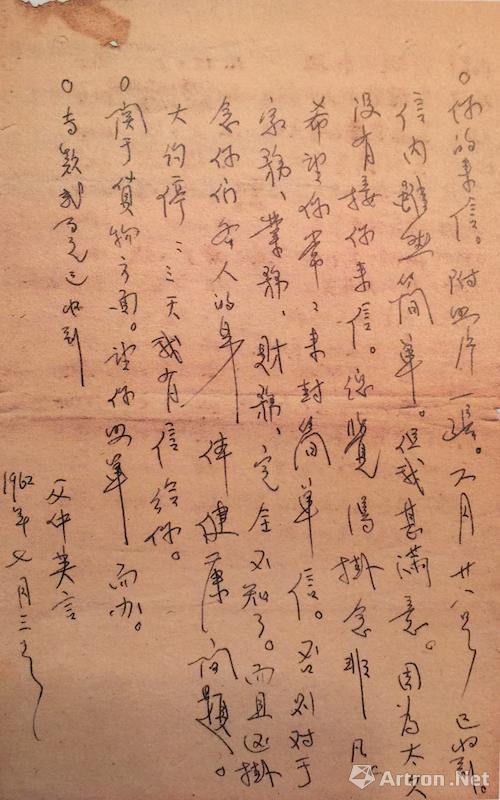 ○你的来信。附照片一张。六月廿八号已收到。
信内虽然简单。但我甚满意。因为太久
没有接你来信。总觉得掛念非凡。
希望你常々来封简单信。否则对于
家务、业务、财务、完全不知了。而且还掛
念你们各人的身体健康问题。
大约停二三天我有信给你。
○关于货物方面。望你照单而办。
○寄款贰百元已收到
父仲英言
1962年七月三号
Artron.Net